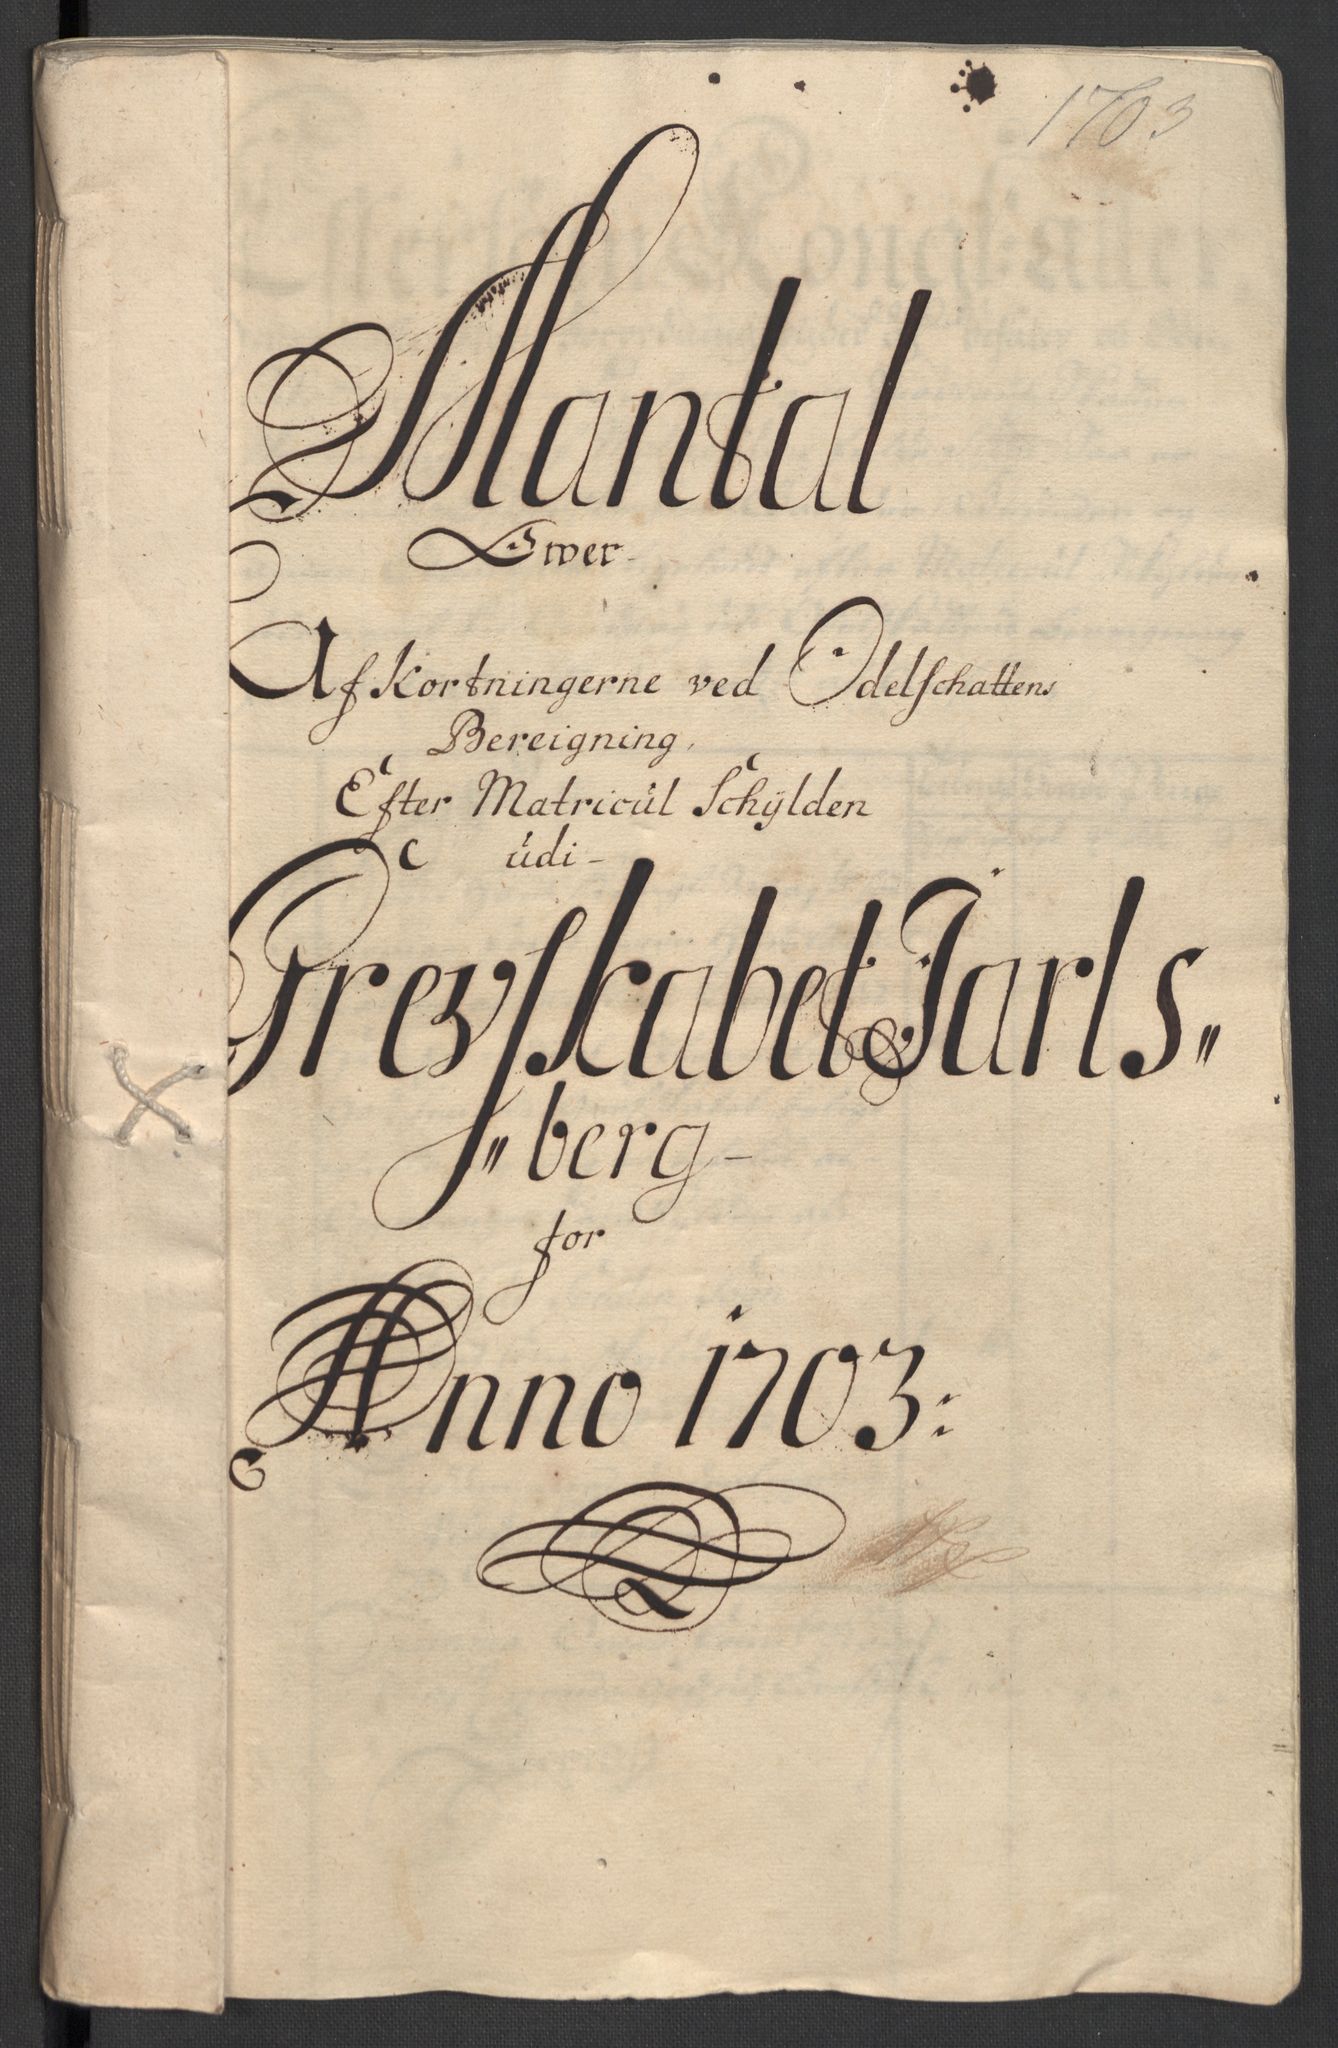 1703
Mantal
Ower
Af Kortningerne ved Odelschattens
Bereigning,
Efter Matricúl Schÿlden
údi
Grevskabet Jarls„
„berg
for
Anno 1703: